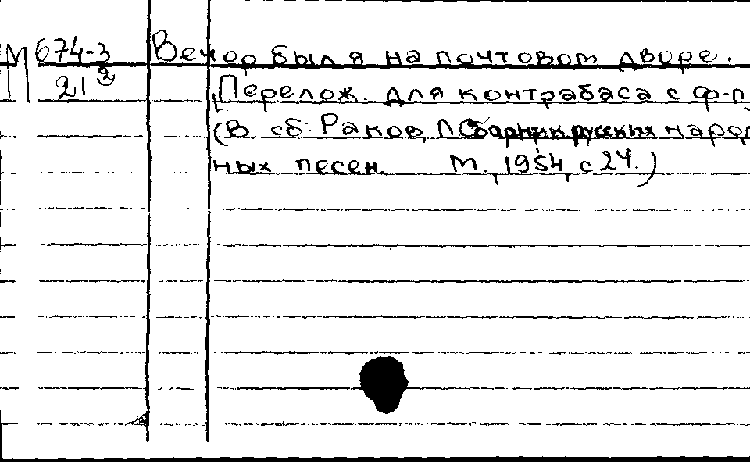 М 674-3 Вечор был я на почтовом дворе.
21 [Перелож. для контрабаса с ф-п
(В сб: Раков, Л. Сборник русских народ
ных песен. М., 1954, с 24.)